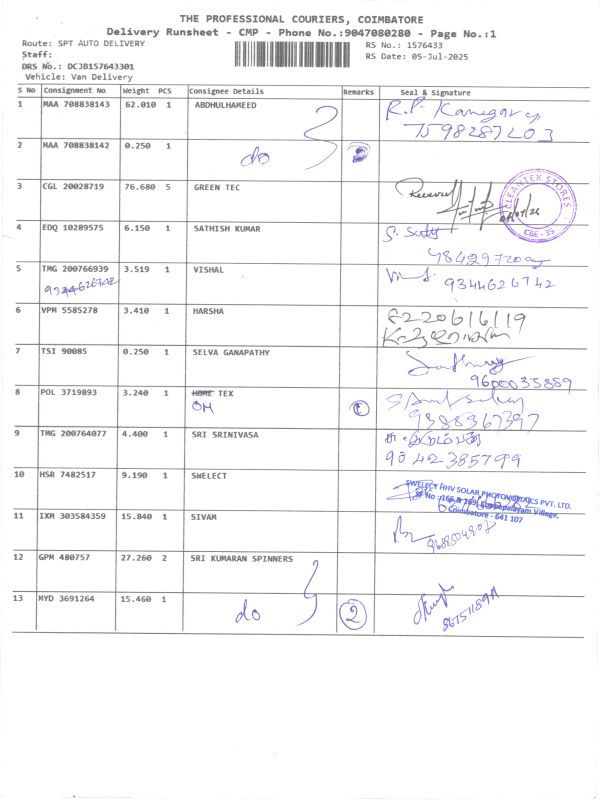 THE PROFESSIONAL COURIERS, COIMBATORE
Delivery Runsheet - CMP - Phone No.:9047080280 - Page No.:1
Route: SPT AUTO DELIVERY RS No.: 1576433
Staff: RS Date: 05-Jul-2025
DRS No.: DCJB157643301
Vehicle: Van Delivery
S No Consignment No Weight PCS Consignee Details Remarks Seal & Signature
1 MAA 708838143 62.010 1 ABDHULHAMEED
7598287203
2 MAA 708838142 0.250 1 do 2
3 CGL 20028719 76.680 5 GREEN TEC Received
CLEANTEK STORES
CBE-35
4 EDQ 10289575 6.150 1 SATHISH KUMAR
5 TMG 200766939 3.519 1 VISHAL 9344626742
9344626742
6 VPM 5585278 3.410 1 HARSHA
7 TSI 90085 0.250 1 SELVA GANAPATHY
9600035889
8 POL 3719893 3.240 1 HOME TEX
OM 1
9388367397
9 TMG 200764077 4.400 1 SRI SRINIVASA
9042385799
10 HSR 7482517 9.190 1 SWELECT
SWELECT HHV SOLAR PHOTOVOLTAICS PVT. LTD.
Village,
Coimbatore - 641 107
11 IXM 303584359 15.840 1 SIVAM
12 GPM 480757 27.260 2 SRI KUMARAN SPINNERS
13 MYD 3691264 15.460 1 do 2